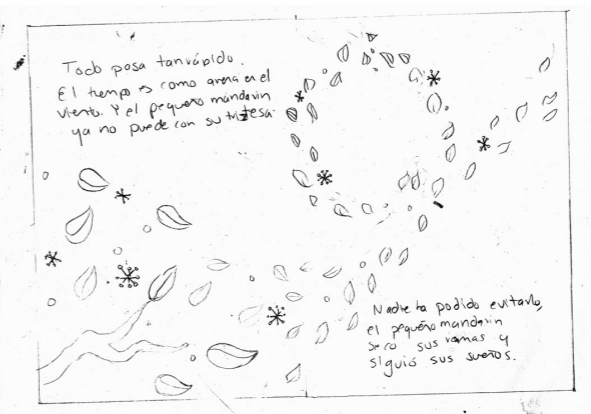 Todo pasa tan rápido.
El tiempo es como arena en el
viento. Y el pequeño mandarin
ya no puede con su tristesa.
Nadie ha podido evitarlo,
el pequeño mandarin
seco sus ramas y
siguió sus sueños.